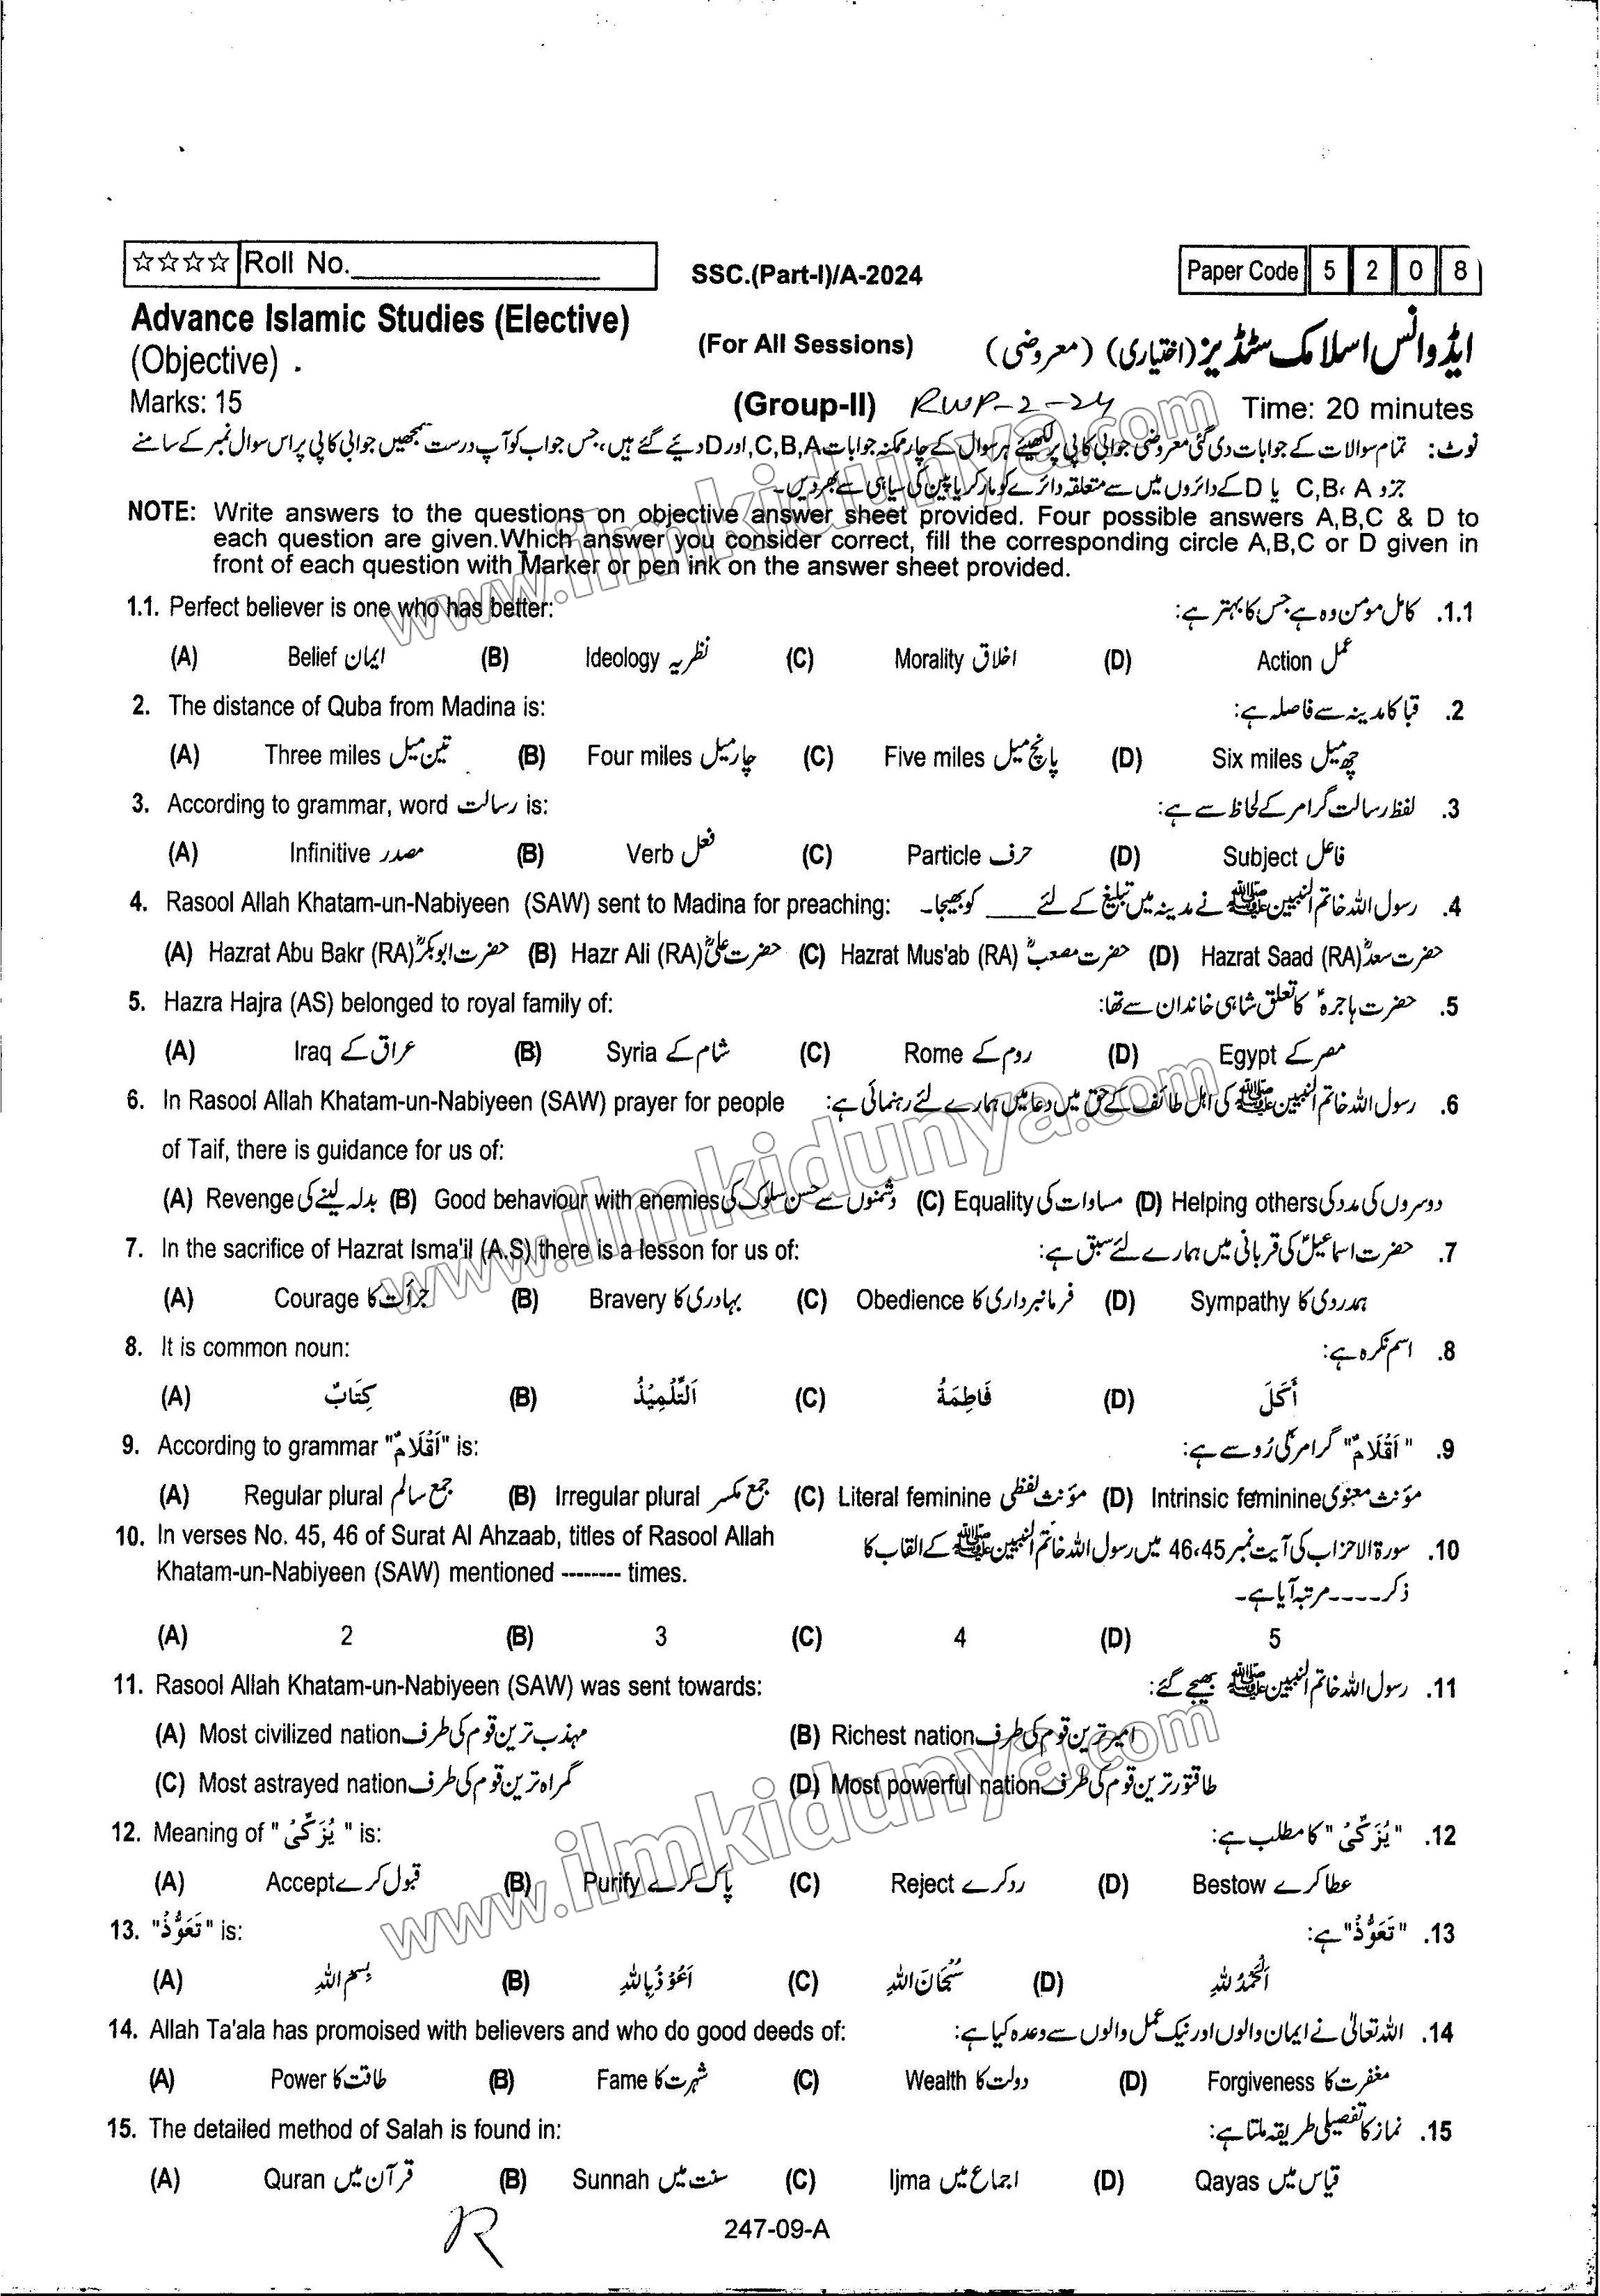 ☆☆☆☆ Roll No.____________ SSC.(Part-I)/A-2024 Paper Code 5 2 0 8
Advance Islamic Studies (Elective) (For All Sessions) ایڈوانس اسلامک سٹڈیز (اختیاری) (معروضی)
(Objective) .
Marks: 15 (Group-II) RWP-2-24 Time: 20 minutes
نوٹ: تمام سوالات کے جوابات دی گئی معروضی جوابی کاپی پر لکھیئے ہر سوال کے چار ممکنہ جوابات C,B,A, اور D دیئے گئے ہیں، جس جواب کو آپ درست سمجھیں جوابی کاپی پر اس سوال نمبر کے سامنے
جزو C,B، A یا D کے دائروں میں سے متعلقہ دائرے کو مارکر یا پین کی سیاہی سے بھر دیں۔
NOTE: Write answers to the questions on objective answer sheet provided. Four possible answers A,B,C & D to
each question are given.Which answer you consider correct, fill the corresponding circle A,B,C or D given in
front of each question with Marker or pen ink on the answer sheet provided.
1.1. Perfect believer is one who has better: 1.1. کامل مومن وہ ہے جس کا بہتر ہے:
(A) Belief ایمان (B) Ideology نظریہ (C) Morality اخلاق (D) Action عمل
2. The distance of Quba from Madina is: 2. قبا کا مدینہ سے فاصلہ ہے:
(A) Three miles تین میل (B) Four miles چار میل (C) Five miles پانچ میل (D) Six miles چھ میل
3. According to grammar, word رسالت is: 3. لفظ رسالت گرامر کے لحاظ سے ہے:
(A) Infinitive مصدر (B) Verb فعل (C) Particle حرف (D) Subject فاعل
4. Rasool Allah Khatam-un-Nabiyeen (SAW) sent to Madina for preaching: 4. رسول اللہ خاتم النبیین ﷺ نے مدینہ میں تبلیغ کے لئے ____ کو بھیجا۔
(A) Hazrat Abu Bakr (RA) حضرت ابوبکرؓ (B) Hazr Ali (RA) حضرت علیؓ (C) Hazrat Mus'ab (RA) حضرت مصعبؓ (D) Hazrat Saad (RA) حضرت سعدؓ
5. Hazra Hajra (AS) belonged to royal family of: 5. حضرت ہاجرہؑ کا تعلق شاہی خاندان سے تھا:
(A) Iraq عراق کے (B) Syria شام کے (C) Rome روم کے (D) Egypt مصر کے
6. In Rasool Allah Khatam-un-Nabiyeen (SAW) prayer for people 6. رسول اللہ خاتم النبیین ﷺ کی اہل طائف کے حق میں دعا میں ہمارے لئے رہنمائی ہے:
of Taif, there is guidance for us of:
(A) Revenge بدلہ لینے کی (B) Good behaviour with enemies دشمنوں سے حسن سلوک کی (C) Equality مساوات کی (D) Helping others دوسروں کی مدد کی
7. In the sacrifice of Hazrat Isma'il (A.S) there is a lesson for us of: 7. حضرت اسماعیلؑ کی قربانی میں ہمارے لئے سبق ہے:
(A) Courage جرأت کا (B) Bravery بہادری کا (C) Obedience فرمانبرداری کا (D) Sympathy ہمدردی کا
8. It is common noun: 8. اسم نکرہ ہے:
(A) كِتَابٌ (B) اَلتِّلْمِيْذُ (C) فَاطِمَةُ (D) أَكَلَ
9. According to grammar "اَقْلَامٌ" is: 9. "اَقْلَامٌ" گرامر کی رُو سے ہے:
(A) Regular plural جمع سالم (B) Irregular plural جمع مکسر (C) Literal feminine مؤنث لفظی (D) Intrinsic feminine مؤنث معنوی
10. In verses No. 45, 46 of Surat Al Ahzaab, titles of Rasool Allah 10. سورۃ الاحزاب کی آیت نمبر 45،46 میں رسول اللہ خاتم النبیین ﷺ کے القاب کا
Khatam-un-Nabiyeen (SAW) mentioned -------- times. ذکر ---- مرتبہ آیا ہے۔
(A) 2 (B) 3 (C) 4 (D) 5
11. Rasool Allah Khatam-un-Nabiyeen (SAW) was sent towards: 11. رسول اللہ خاتم النبیین ﷺ بھیجے گئے:
(A) Most civilized nation مہذب ترین قوم کی طرف (B) Richest nation امیر ترین قوم کی طرف
(C) Most astrayed nation گمراہ ترین قوم کی طرف (D) Most powerful nation طاقتور ترین قوم کی طرف
12. Meaning of "يُزَكِّىْ" is: 12. "يُزَكِّىْ" کا مطلب ہے:
(A) Accept قبول کرے (B) Purify پاک کرے (C) Reject رد کرے (D) Bestow عطا کرے
13. "تَعَوُّذْ" is: 13. "تَعَوُّذْ" ہے:
(A) بِسْمِ اللهِ (B) اَعُوْذُ بِاللهِ (C) سُبْحَانَ اللهِ (D) اَلْحَمْدُ لِلّٰهِ
14. Allah Ta'ala has promoised with believers and who do good deeds of: 14. اللہ تعالیٰ نے ایمان والوں اور نیک عمل والوں سے وعدہ کیا ہے:
(A) Power طاقت کا (B) Fame شہرت کا (C) Wealth دولت کا (D) Forgiveness مغفرت کا
15. The detailed method of Salah is found in: 15. نماز کا تفصیلی طریقہ ملتا ہے:
(A) Quran قرآن میں (B) Sunnah سنت میں (C) Ijma اجماع میں (D) Qayas قیاس میں
R 247-09-A
www.ilmkidunya.com
www.ilmkidunya.com
www.ilmkidunya.com